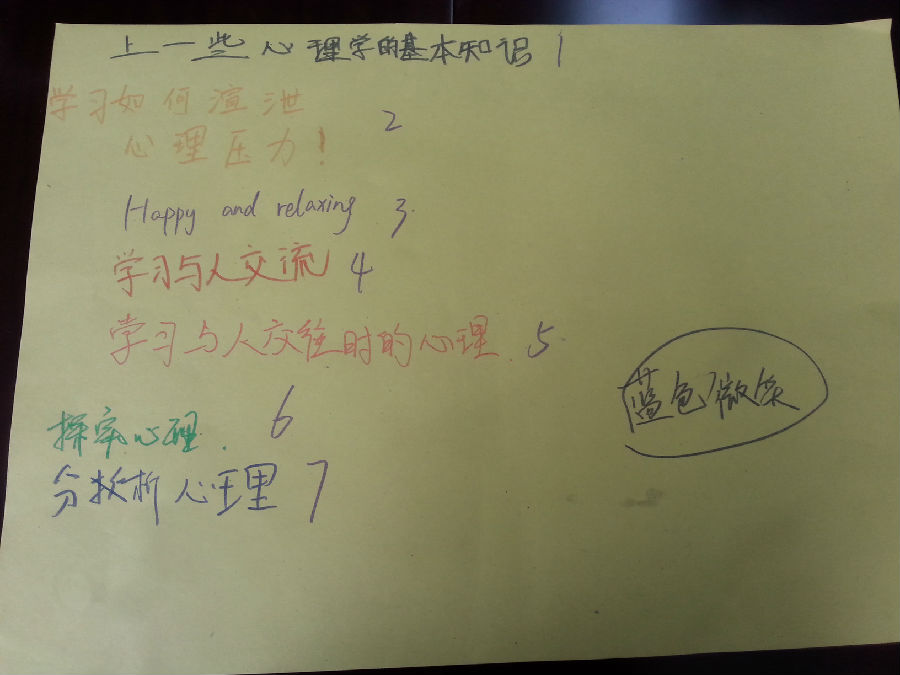 上一些心理学的基本知识 1
学习如何渲泄
心理压力! 2
Happy and relaxing 3.
学习与人交流 4
学习与人交往时的心理. 5.
探究心理. 6
分析心理 7
蓝色微笑